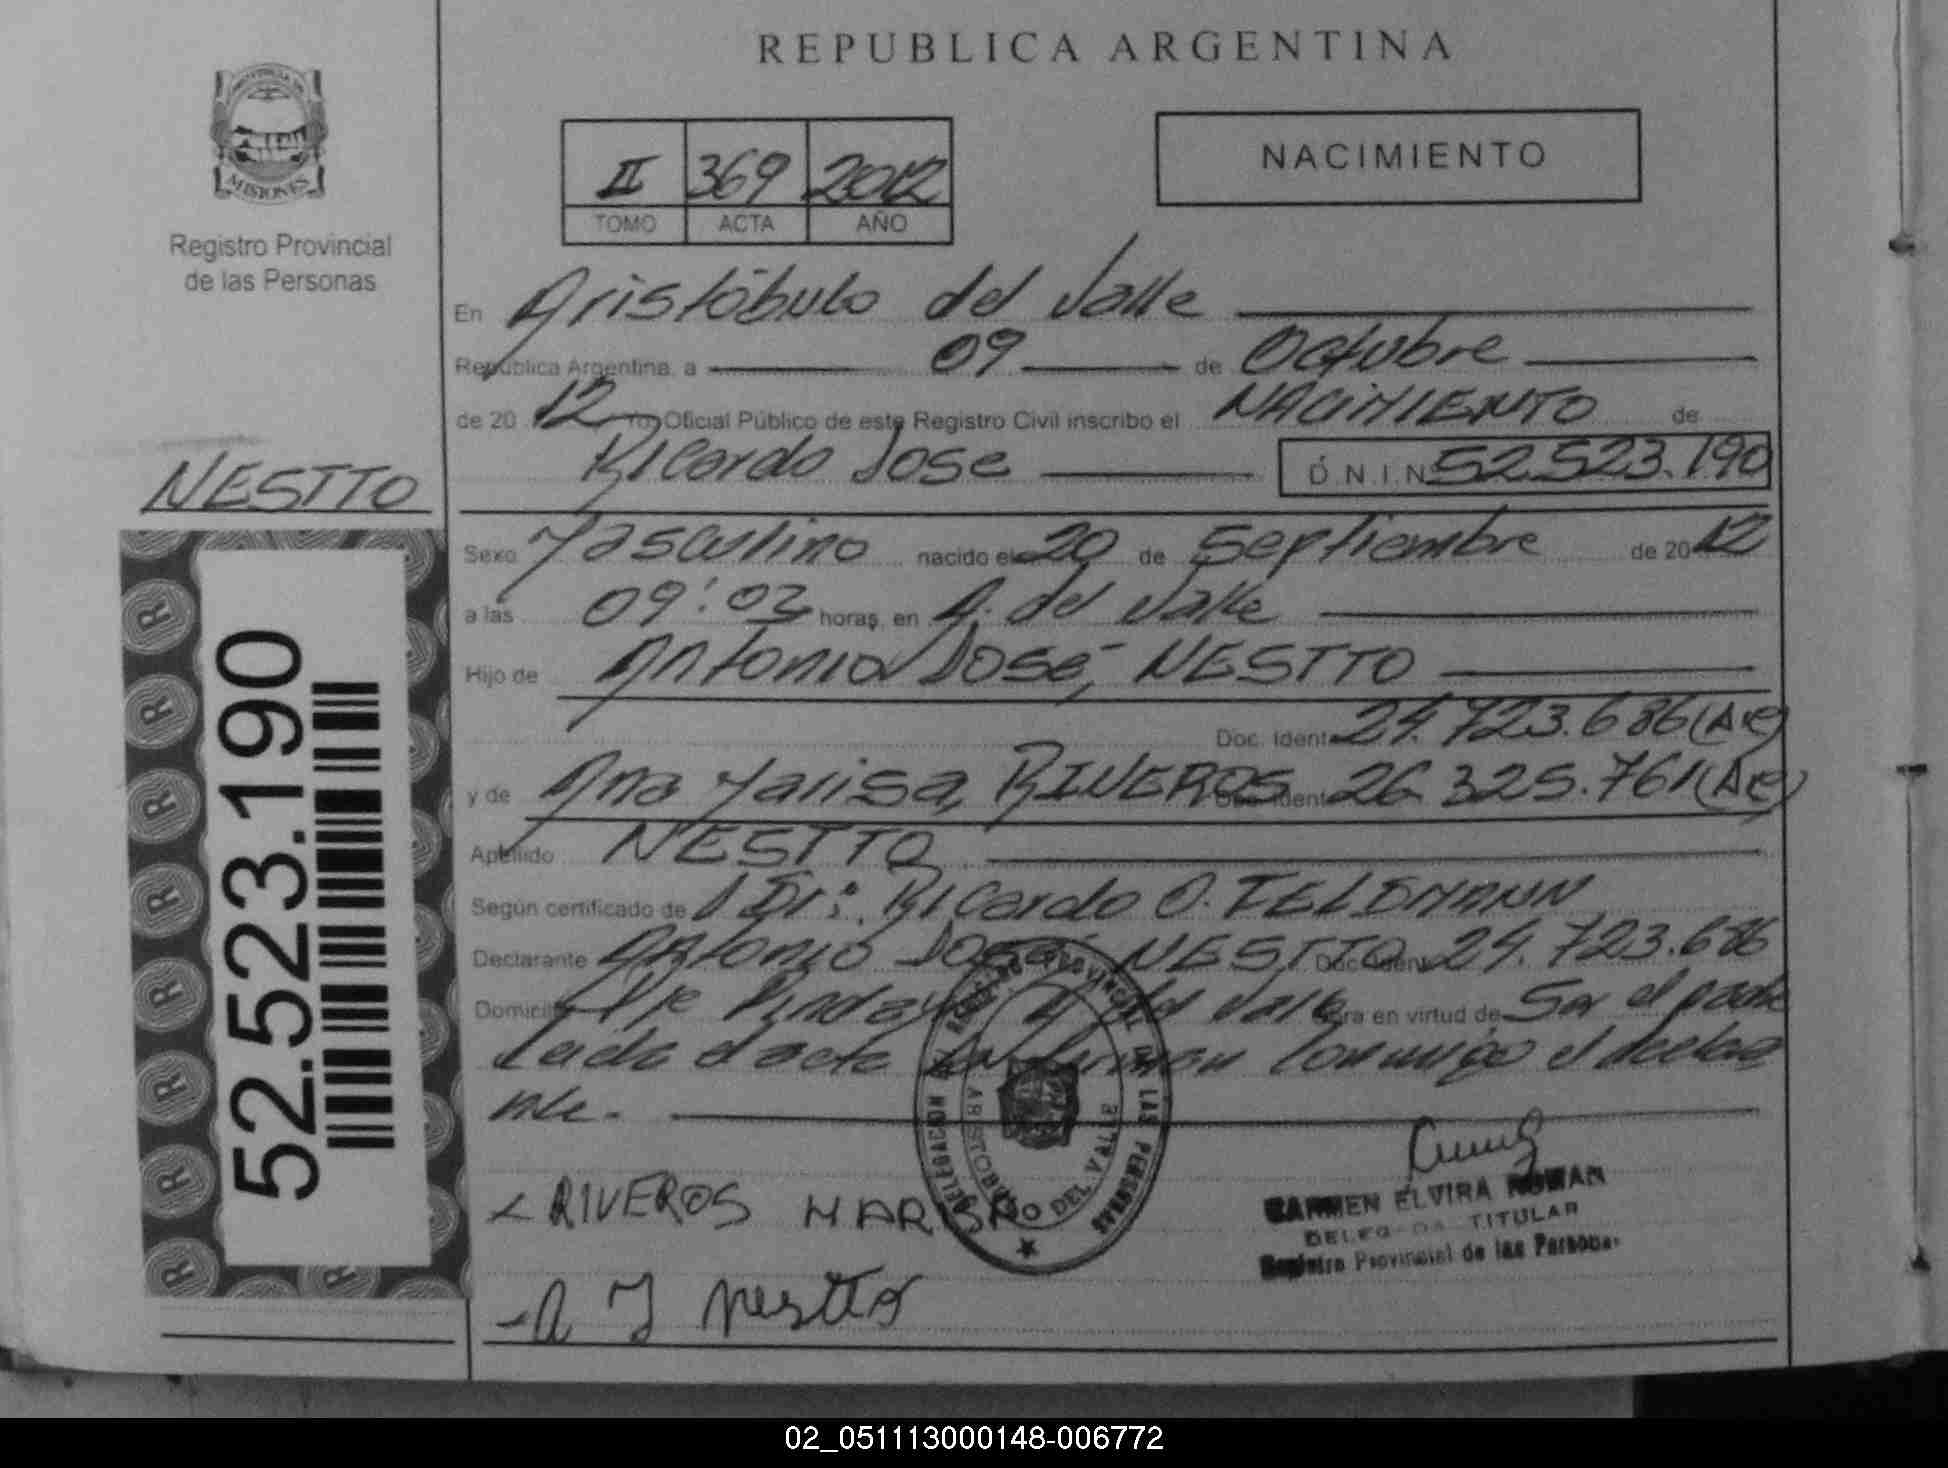 REPUBLICA ARGENTINA
PROVINCIA DE
MISIONES
Registro Provincial
de las Personas
II 369 2012
TOMO ACTA AÑO
NACIMIENTO
En Aristóbulo del Valle
República Argentina, a 09 de Octubre
de 20 12 Yo, Oficial Público de este Registro Civil inscribo el NACIMIENTO de
Ricardo Jose D.N.I.N 52.523.190
NESTTO
Sexo Masculino nacido el 20 de Septiembre de 20 12
a las 09:03 horas, en A. del Valle
Hijo de Antonio José, NESTTO
Doc. Ident 24.723.686 (Ar)
y de Ana Marisa, RIVEROS Doc. Ident 26.325.761 (Ar)
Apellido NESTTO
Según certificado de Dr: Ricardo O. FELDMANN
Declarante Antonio José NESTTO Doc. Ident 24.723.686
Domicilio A. del Valle obra en virtud de Ser el padre
Leida el acta la firman conmigo el declara
nte.
52.523.190
DELEGACION REGISTRO PROVINCIAL DE LAS PERSONAS
ARISTOBULO DEL VALLE
RIVEROS MARISA
CARMEN ELVIRA ROMAN
DELEGADA TITULAR
Registro Provincial de las Personas
A J Nestto
02_051113000148-006772